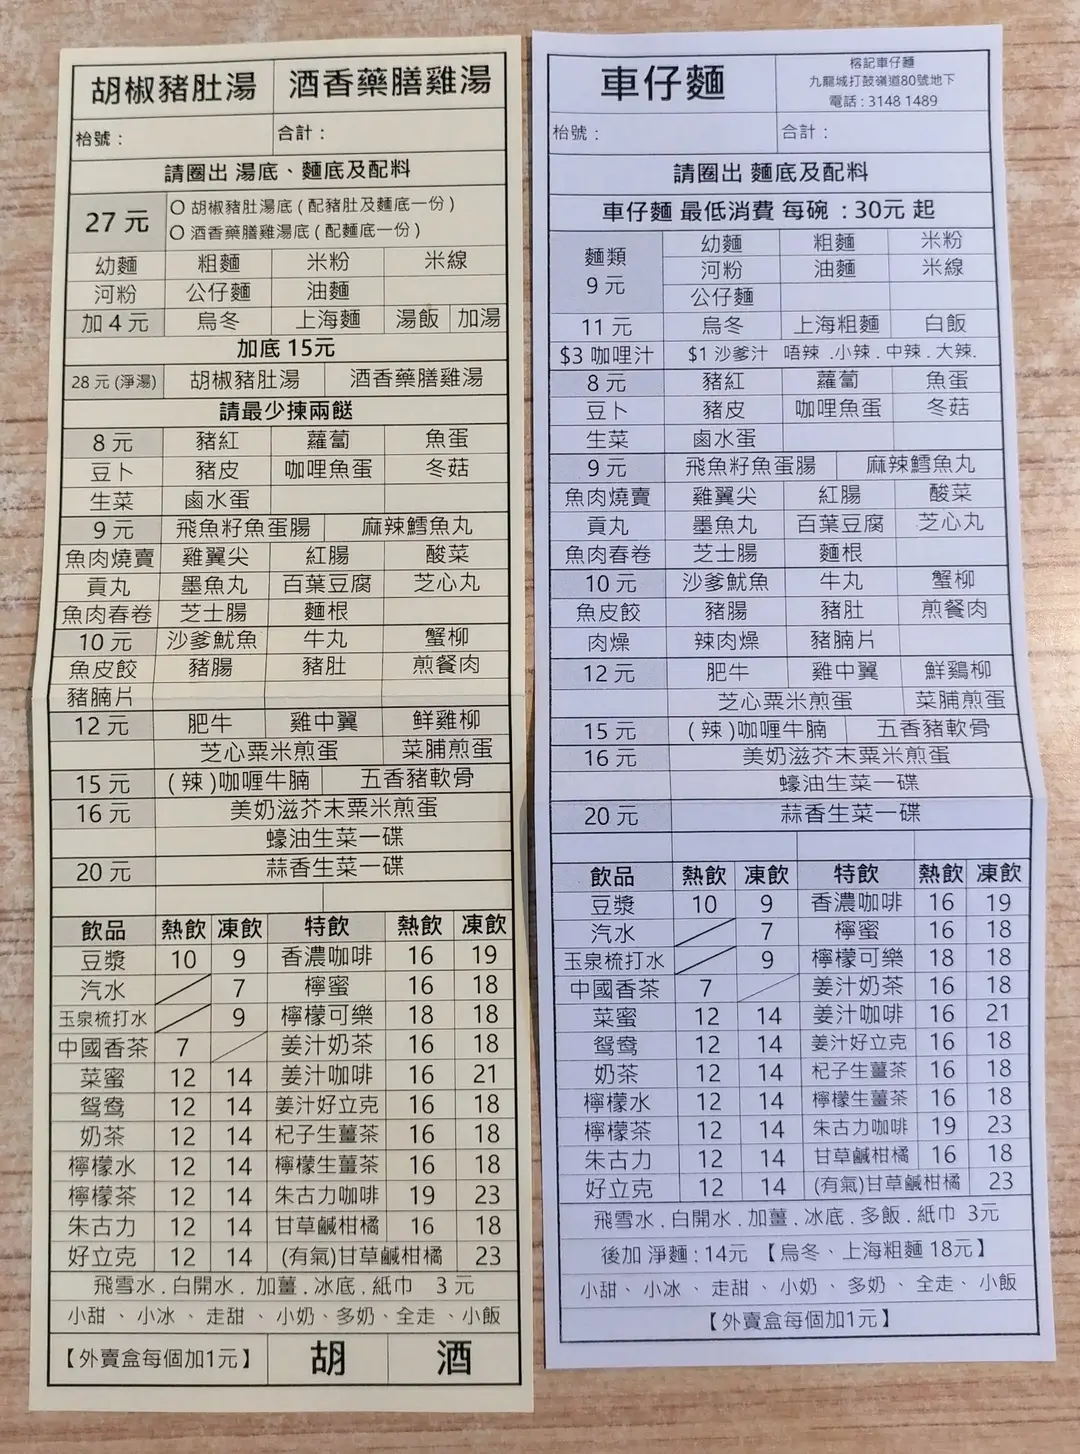 胡椒豬肚湯 酒香藥膳雞湯
枱號： 合計：
請圈出 湯底、麵底及配料
27 元 O 胡椒豬肚湯底 ( 配豬肚及麵底一份 )
O 酒香藥膳雞湯底 ( 配麵底一份 )
幼麵 粗麵 米粉 米線
河粉 公仔麵 油麵
加 4 元 烏冬 上海麵 湯飯 加湯
加底 15元
28 元 (淨湯) 胡椒豬肚湯 酒香藥膳雞湯
請最少揀兩餸
8 元 豬紅 蘿蔔 魚蛋
豆卜 豬皮 咖哩魚蛋 冬菇
生菜 鹵水蛋
9 元 飛魚籽魚蛋腸 麻辣鱈魚丸
魚肉燒賣 雞翼尖 紅腸 酸菜
貢丸 墨魚丸 百葉豆腐 芝心丸
魚肉春卷 芝士腸 麵根
10 元 沙爹魷魚 牛丸 蟹柳
魚皮餃 豬腸 豬肚 煎餐肉
豬腩片
12 元 肥牛 雞中翼 鮮雞柳
芝心粟米煎蛋 菜脯煎蛋
15 元 ( 辣 )咖喱牛腩 五香豬軟骨
16 元 美奶滋芥末粟米煎蛋
蠔油生菜一碟
20 元 蒜香生菜一碟
飲品 熱飲 凍飲 特飲 熱飲 凍飲
豆漿 10 9 香濃咖啡 16 19
汽水 7 檸蜜 16 18
玉泉梳打水 9 檸檬可樂 18 18
中國香茶 7 姜汁奶茶 16 18
菜蜜 12 14 姜汁咖啡 16 21
鴛鴦 12 14 姜汁好立克 16 18
奶茶 12 14 杞子生薑茶 16 18
檸檬水 12 14 檸檬生薑茶 16 18
檸檬茶 12 14 朱古力咖啡 19 23
朱古力 12 14 甘草鹹柑橘 16 18
好立克 12 14 (有氣)甘草鹹柑橘 23
飛雪水 . 白開水 . 加薑 . 冰底 . 紙巾 3 元
小甜 、 小冰 、 走甜 、 小奶、多奶、全走 、小飯
【外賣盒每個加1元】 胡 酒
車仔麵 榕記車仔麵
九龍城打鼓嶺道80號地下
電話 : 3148 1489
枱號： 合計：
請圈出 麵底及配料
車仔麵 最低消費 每碗 : 30元 起
麵類 幼麵 粗麵 米粉
9 元 河粉 油麵 米線
公仔麵
11 元 烏冬 上海粗麵 白飯
$3 咖哩汁 $1 沙爹汁 唔辣 .小辣 . 中辣 . 大辣.
8 元 豬紅 蘿蔔 魚蛋
豆卜 豬皮 咖哩魚蛋 冬菇
生菜 鹵水蛋
9 元 飛魚籽魚蛋腸 麻辣鱈魚丸
魚肉燒賣 雞翼尖 紅腸 酸菜
貢丸 墨魚丸 百葉豆腐 芝心丸
魚肉春卷 芝士腸 麵根
10 元 沙爹魷魚 牛丸 蟹柳
魚皮餃 豬腸 豬肚 煎餐肉
肉燥 辣肉燥 豬腩片
12 元 肥牛 雞中翼 鮮鷄柳
芝心粟米煎蛋 菜脯煎蛋
15 元 ( 辣 )咖喱牛腩 五香豬軟骨
16 元 美奶滋芥末粟米煎蛋
蠔油生菜一碟
20 元 蒜香生菜一碟
飲品 熱飲 凍飲 特飲 熱飲 凍飲
豆漿 10 9 香濃咖啡 16 19
汽水 7 檸蜜 16 18
玉泉梳打水 9 檸檬可樂 18 18
中國香茶 7 姜汁奶茶 16 18
菜蜜 12 14 姜汁咖啡 16 21
鴛鴦 12 14 姜汁好立克 16 18
奶茶 12 14 杞子生薑茶 16 18
檸檬水 12 14 檸檬生薑茶 16 18
檸檬茶 12 14 朱古力咖啡 19 23
朱古力 12 14 甘草鹹柑橘 16 18
好立克 12 14 (有氣)甘草鹹柑橘 23
飛雪水 . 白開水 . 加薑 . 冰底 . 多飯 . 紙巾 3元
後加 淨麵 : 14元 【烏冬、上海粗麵 18元】
小甜、 小冰 、 走甜 、 小奶 、 多奶 、 全走、 小飯
【外賣盒每個加1元】